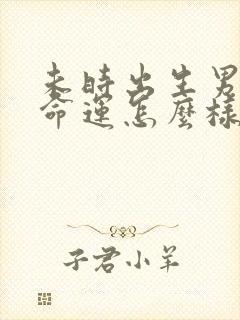 未時出生男
命運怎麼樣
子君小羊